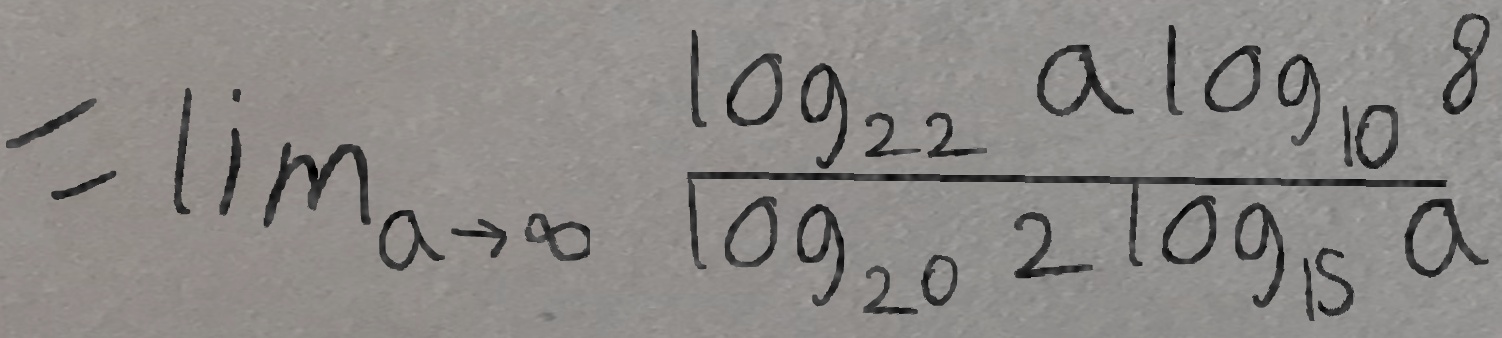 = lim_{a→∞} \frac{log_{22} a log_{10} 8}{log_{20} 2 log_{15} a}